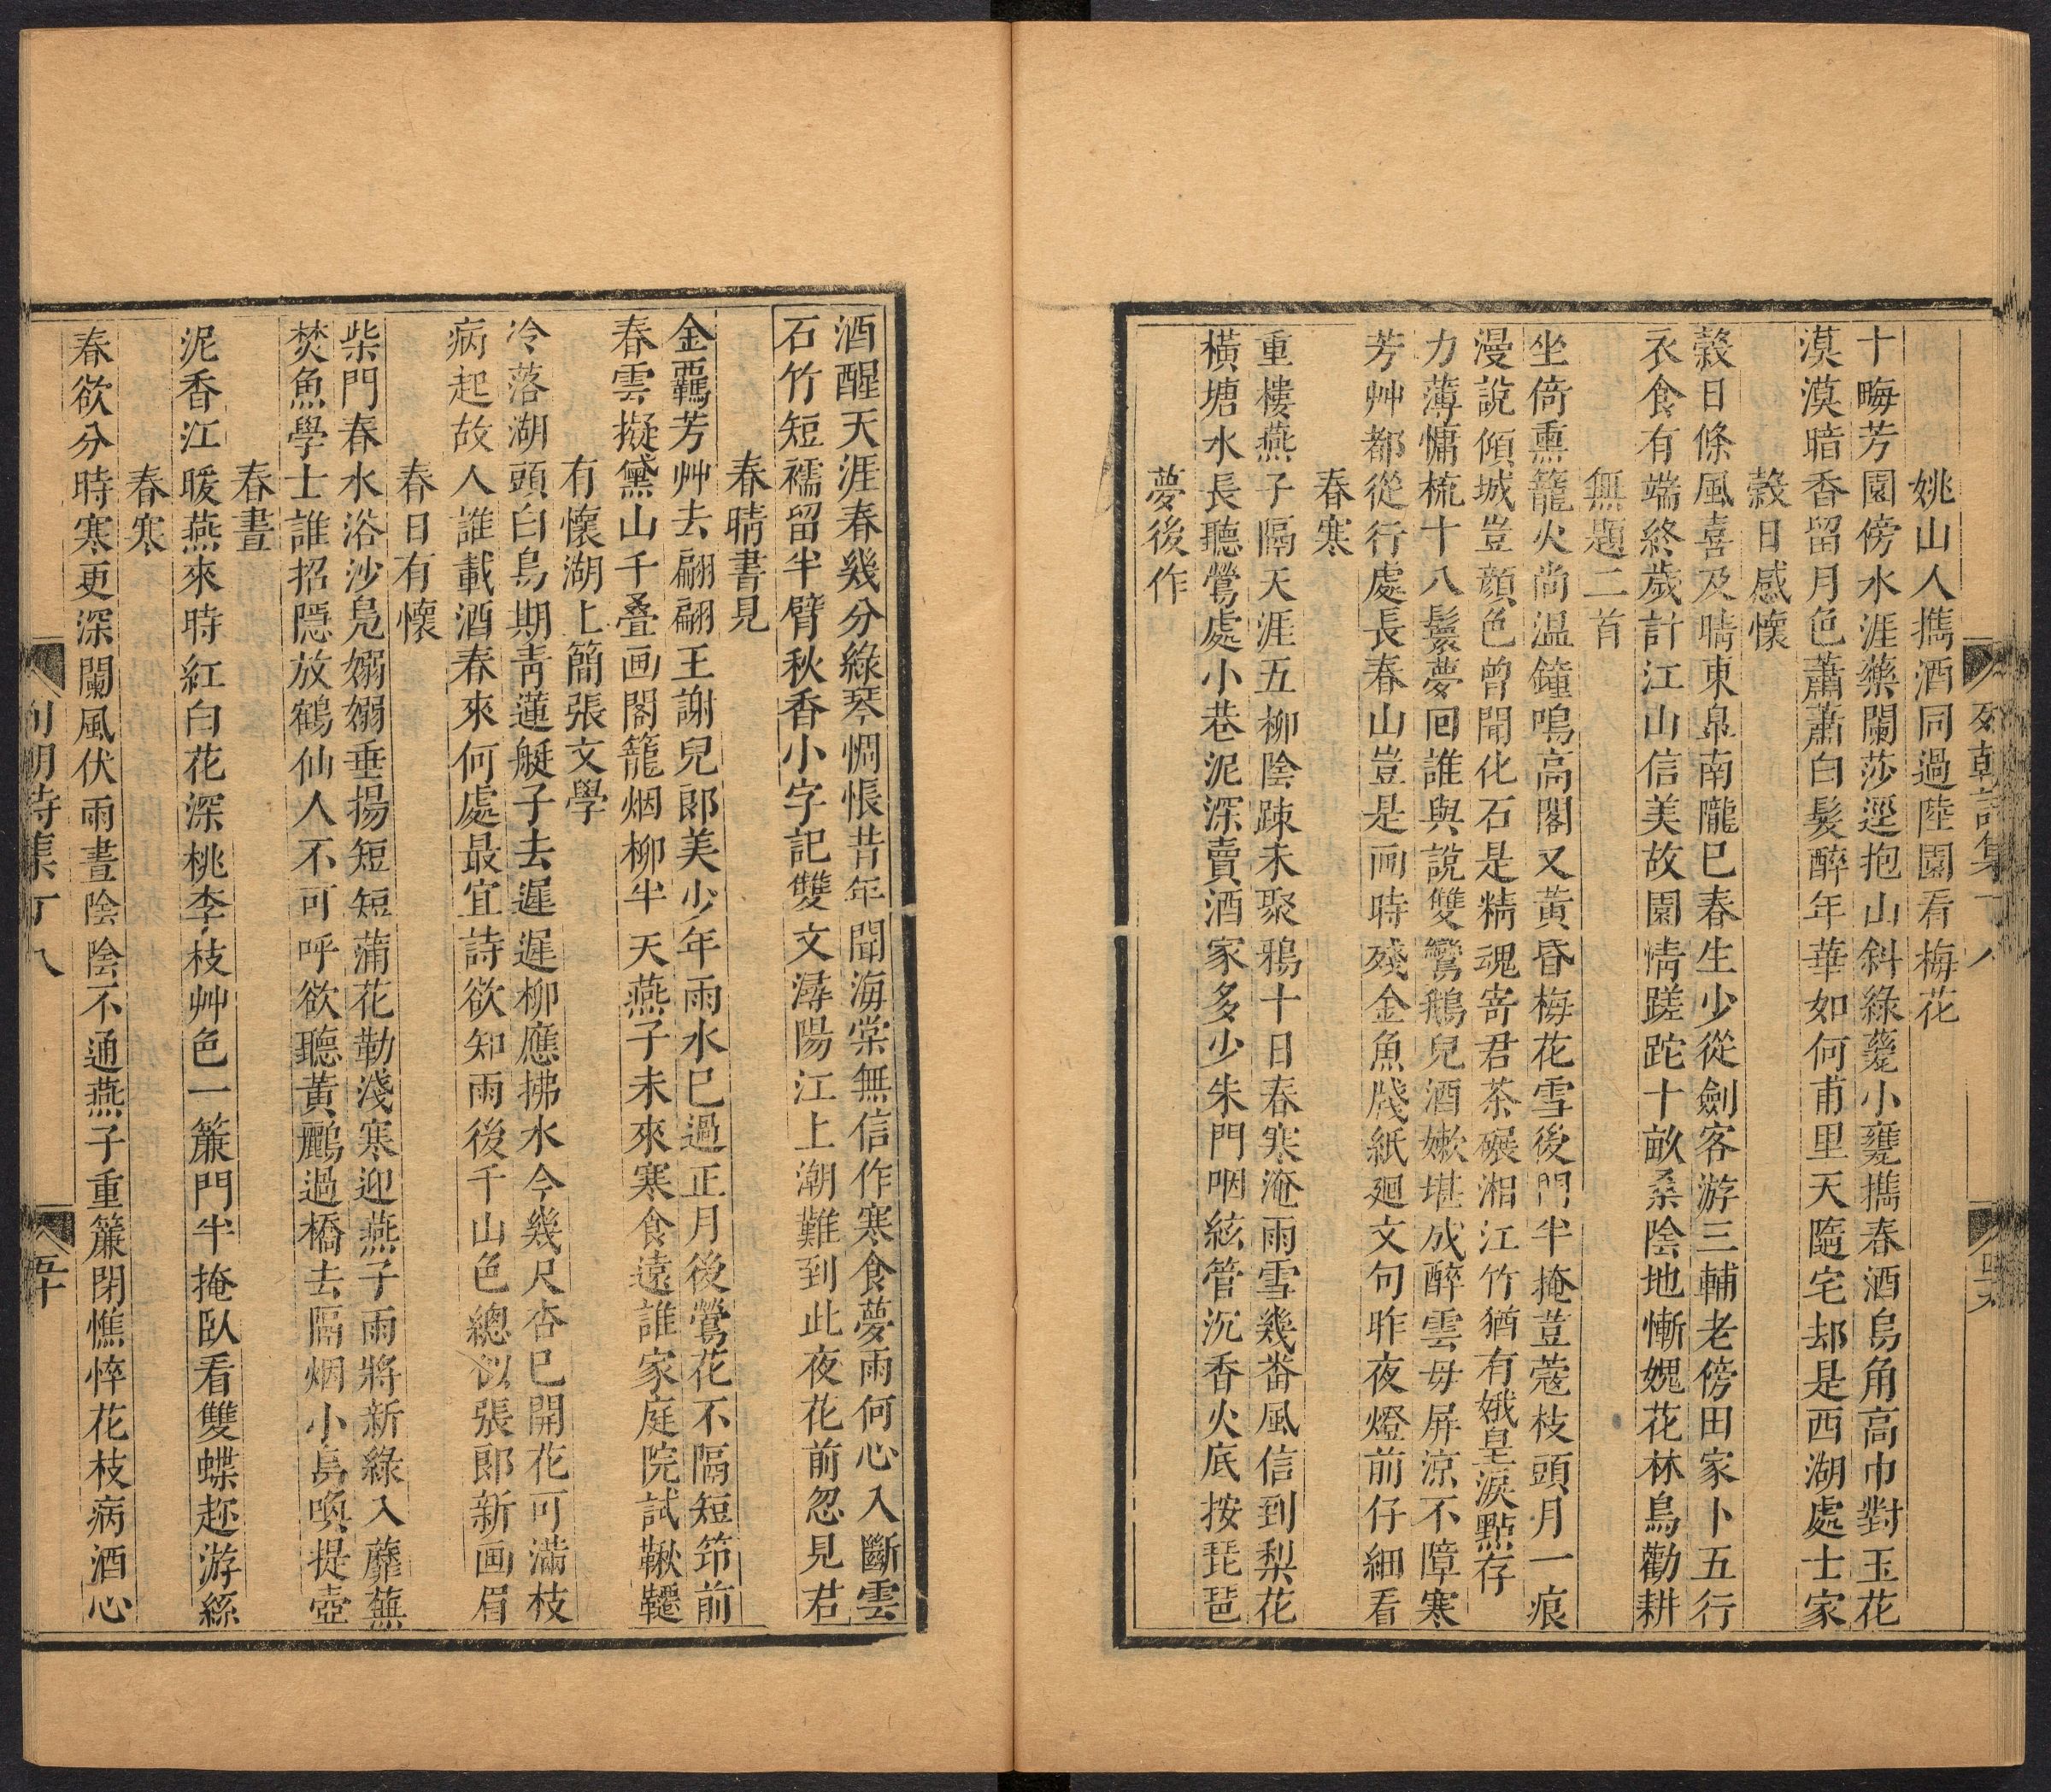 列朝詩集丁八
四九
姚山人攜酒同過陸園看梅花
十畮芳園傍水涯藥闌莎逕抱山斜綠蕘小甕攜春酒烏角高巾對玉花
漠漠暗香留月色蕭蕭白髮醉年華如何甫里天隨宅却是西湖處士家
穀日感懷
穀日條風喜及晴東皐南隴已春生少從劍客游三輔老傍田家卜五行
衣食有端終歲計江山信美故園情蹉跎十畝桑陰地慚媿花林鳥勸耕
無題二首
坐倚熏籠火尚温鐘鳴高閣又黃昏梅花雪後門半掩荳蔻枝頭月一痕
漫說傾城豈顏色曾聞化石是精魂寄君茶碾湘江竹猶有娥皇淚點存
力薄慵梳十八鬟夢回誰與說雙鸞鵝兒酒嫰堪成醉雲母屏涼不障寒
芳艸都從行處長春山豈是画時殘金魚牋紙廻文句昨夜燈前仔細看
春寒
重樓燕子隔天涯五柳陰踈未聚鴉十日春寒淹雨雪幾畨風信到梨花
橫塘水長聽鶯處小巷泥深賣酒家多少朱門咽絃管沉香火底按琵琶
夢後作
酒醒天涯春幾分綠琴惆悵昔年聞海棠無信作寒食夢雨何心入斷雲
石竹短襦留半臂秋香小字記雙文潯陽江上潮難到此夜花前忽見君
春晴書見
金覊芳艸去翩翩王謝兒郎美少年雨水已過正月後鶯花不隔短笻前
春雲擬黛山千叠画閣籠烟柳半天燕子未來寒食遠誰家庭院試鞦韆
有懷湖上簡張文學
冷落湖頭白鳥期青蓮艇子去遲遲柳應拂水今幾尺杏已開花可滿枝
病起故人誰載酒春來何處最宜詩欲知雨後千山色總似張郎新画眉
春日有懷
柴門春水浴沙鳧嫋嫋垂揚短短蒲花勒淺寒迎燕子雨將新綠入蘼蕪
焚魚學士誰招隱放鶴仙人不可呼欲聽黃鸝過橋去隔烟小鳥喚提壺
春晝
泥香江暖燕來時紅白花深桃李枝艸色一簾門半掩臥看雙蝶趂游絲
春寒
春欲分時寒更深闌風伏雨晝陰陰不通燕子重簾閉憔悴花枝病酒心
列朝詩集丁八
五十